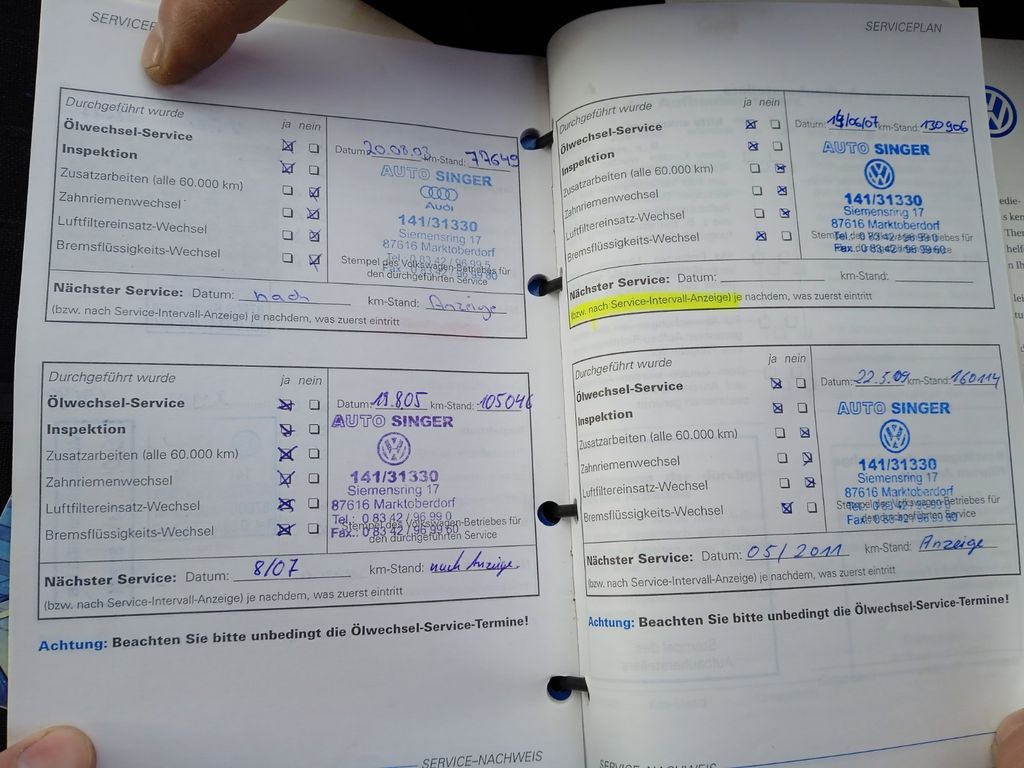 SERVICEP
Durchgeführt wurde
ja nein
Ölwechsel-Service
Inspektion
Zusatzarbeiten (alle 60.000 km)
Zahnriemenwechsel
Luftfiltereinsatz-Wechsel
Bremsflüssigkeits-Wechsel
Datum: 20.08.03 km-Stand: 77649
AUTO SINGER
Audi
141/31330
Siemensring 17
87616 Marktoberdorf
Tel. 0 83 42 / 96 99 5
Stempel des Volkswagen-Betriebes für
den durchgeführten Service
Nächster Service: Datum: nach km-Stand: Anzeige
(bzw. nach Service-Intervall-Anzeige) je nachdem, was zuerst eintritt
Durchgeführt wurde
ja nein
Ölwechsel-Service
Inspektion
Zusatzarbeiten (alle 60.000 km)
Zahnriemenwechsel
Luftfiltereinsatz-Wechsel
Bremsflüssigkeits-Wechsel
Datum: 19.8.05 km-Stand: 105046
AUTO SINGER
141/31330
Siemensring 17
87616 Marktoberdorf
Tel.: 0 83 42 / 96 99 0
Stempel des Volkswagen-Betriebes für
Fax.: 0 83 42 / 96 99 60
den durchgeführten Service
Nächster Service: Datum: 8/07 km-Stand: nach Anzeige
(bzw. nach Service-Intervall-Anzeige) je nachdem, was zuerst eintritt
Achtung: Beachten Sie bitte unbedingt die Ölwechsel-Service-Termine!
SERVICE–NACHWEIS
SERVICEPLAN
Durchgeführt wurde
ja nein
Ölwechsel-Service
Inspektion
Zusatzarbeiten (alle 60.000 km)
Zahnriemenwechsel
Luftfiltereinsatz-Wechsel
Bremsflüssigkeits-Wechsel
Datum: 19/06/07 km-Stand: 130906
AUTO SINGER
141/31330
Siemensring 17
87616 Marktoberdorf
Tel. 0 83 42 / 96 99 0
Fax. 0 83 42 / 96 99 60
Nächster Service: Datum: km-Stand:
(bzw. nach Service-Intervall-Anzeige) je nachdem, was zuerst eintritt
Durchgeführt wurde
ja nein
Ölwechsel-Service
Inspektion
Zusatzarbeiten (alle 60.000 km)
Zahnriemenwechsel
Luftfiltereinsatz-Wechsel
Bremsflüssigkeits-Wechsel
Datum: 22.5.09 km-Stand: 160114
AUTO SINGER
141/31330
Siemensring 17
87616 Marktoberdorf
Tel. 0 83 42 / 96 99 0
Fax. 0 83 42 / 96 99 60
Nächster Service: Datum: 05/2011 km-Stand: Anzeige
(bzw. nach Service-Intervall-Anzeige) je nachdem, was zuerst eintritt
Achtung: Beachten Sie bitte unbedingt die Ölwechsel-Service-Termine!
SERVICE–NACHWEIS